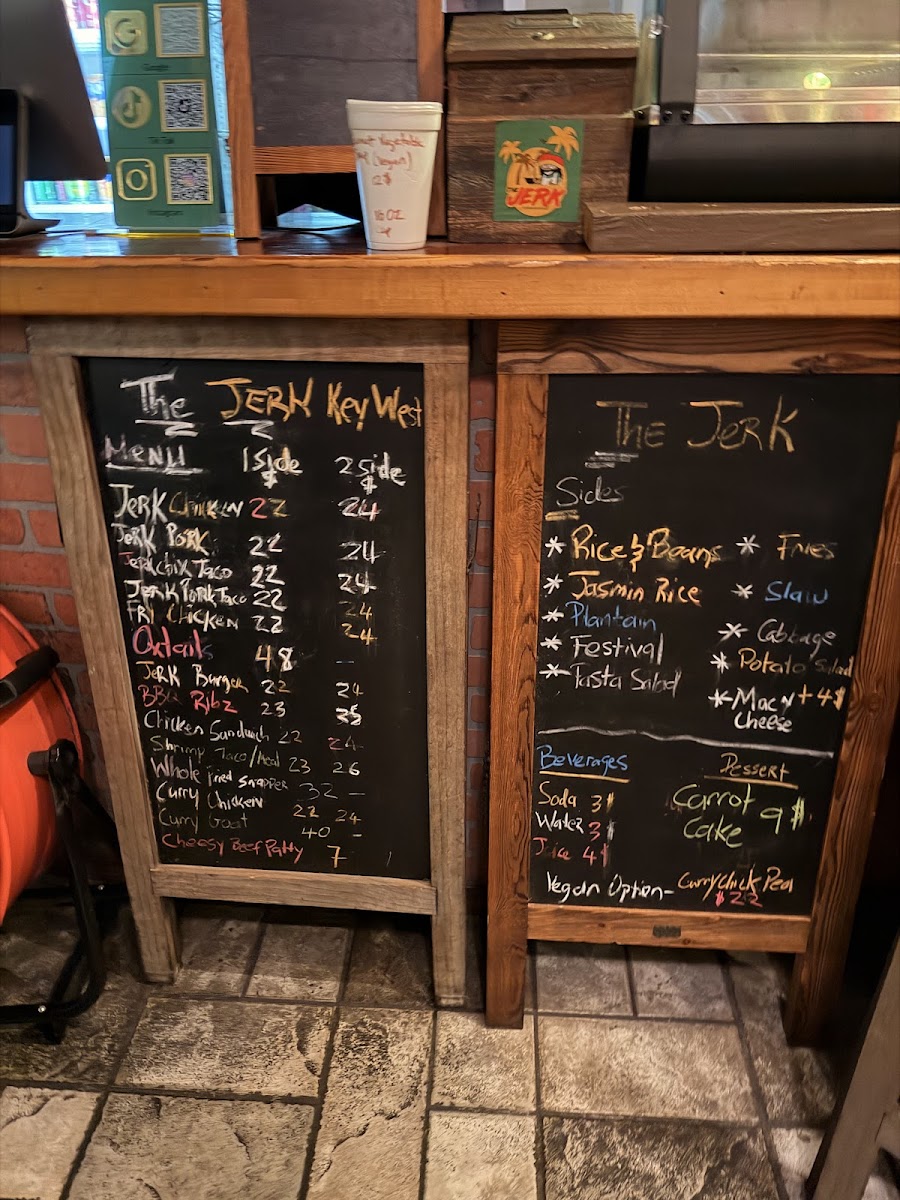 Google
Tik Tok
Instagram
Vegetable
(Vegan)
12$
16 oz
THE
JERK
The JERK Key West
Menu 1 Side 2 side
$ $
JERK Chicken 22 24
Jerk Pork 22 24
Jerk chix Taco 22 24
Jerk Pork Taco 22 24
FRI Chicken 22 24
Oxtails 48 –
Jerk Burger 22 24
BBQ Ribz 23 25
Chicken Sandwich 22 24
Shrimp Taco/Meal 23 26
Whole fried snapper 32 –
Curry Chicken 22 24
Curry Goat 40 –
Cheesy Beef Patty 7
The Jerk
Sides
* Rice & Beans * Fries
* Jasmin Rice * Slaw
* Plantain
* Festival * Cabbage
* Pasta Salad * Potato Salad
* Mac N +4$
Cheese
Beverages Dessert
Soda 3$ Carrot
Water 3$ Cake 9$
Juice 4$
Vegan Option – Curry Chick Pea
$22